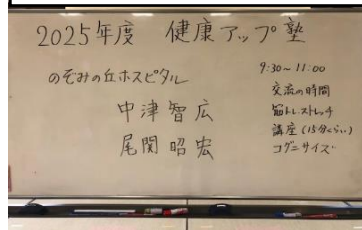 2025年度 健康アップ塾
のぞみの丘ホスピタル
中津智広
尾関昭宏
9:30~11:00
交流の時間
筋トレ.ストレッチ
講座(15分くらい)
コグニサイズ